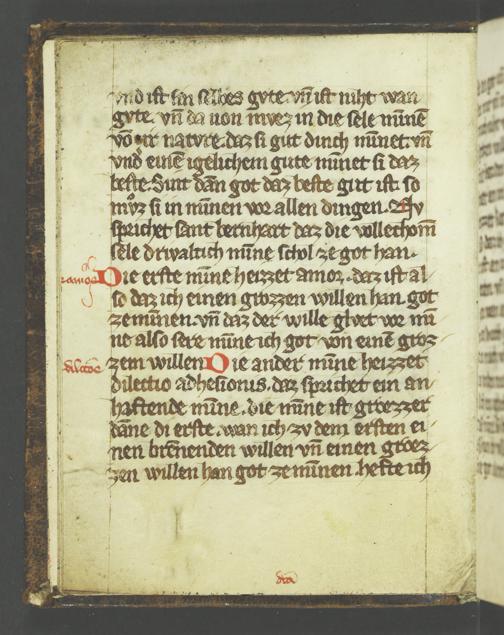 vnd ist sin selbes gvte. vn̄ ist niht wan
gvte. vn̄ da uon mvez in die sele minnē
vō ir natvre. daz si gut dinch minnet. vn̄
vnd einē igelichem gute minnet si daz
beste. Sint dān got daz beste gut ist. so
mvz si in minnen vor allen dingen. Nv
sprichet sant bernhart daz die vollechom̄
sele drivaltich minne schol ze got han.
Die erste minne heizzet amor. daz ist al
so daz ich einen grozzen willen han. got
ze minnen. vn̄ daz der wille glvet vor mi
ne also sere minne ich got von einē groz
zem willen Die ander minne heizzet
dilectio adhesionis. daz sprichet ein an
haftende minne. die minne ist groezzer
dāne di erste. wan ich zv dem ersten ei
nen brēnenden willen vn̄ einen groez
zen willen han got ze minnen. hefte ich